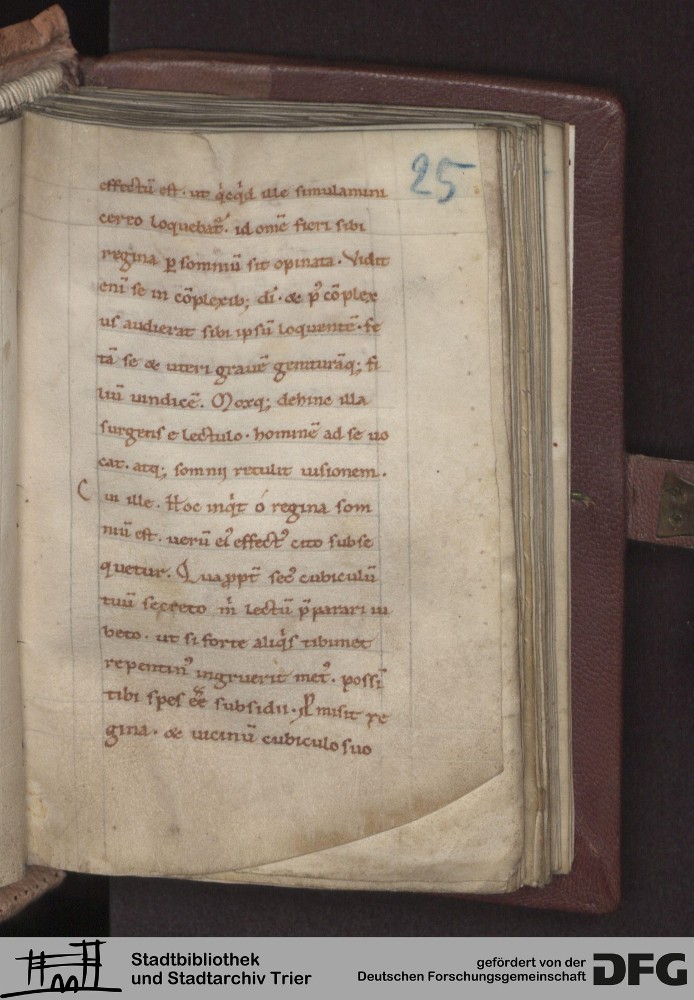 25
effectū est · ut q̇cq̇d ille simulamini
cereo loquebat᷑ · id om̄e fieri sibi
regina ꝑ somniū sit opinata · Vidit
eni᷑ se in cōplexib; di᷑ · & p᷒ cōplex
us audierat sibi ipsū loquentē · fe
tā se & uteri grauē genituraq̄; fi
liū uindicē . Moxq; dehinc illa
surgens e lectulo · hominē ad se uo
cat · atq; somnij retulit uisionem ·
C ui ille . Hoc inq̇t ó regina som
niū est · uerū ei᷒ effect᷒ cito subse
quetur . Quaꝓpt᷑ sec᷒ cubiculū
tuū secreto m̄ lectū p̄parari iu
beto · ut si forte aliq̇s tibimet
repentin᷒ ingruerit met᷒ · possi᷑
tibi spes ēē subsidii · Pmisit re
gina · & uicinū cubiculo suo
Stadtbibliothek
und Stadtarchiv Trier
gefördert von der
Deutschen Forschungsgemeinschaft
DFG